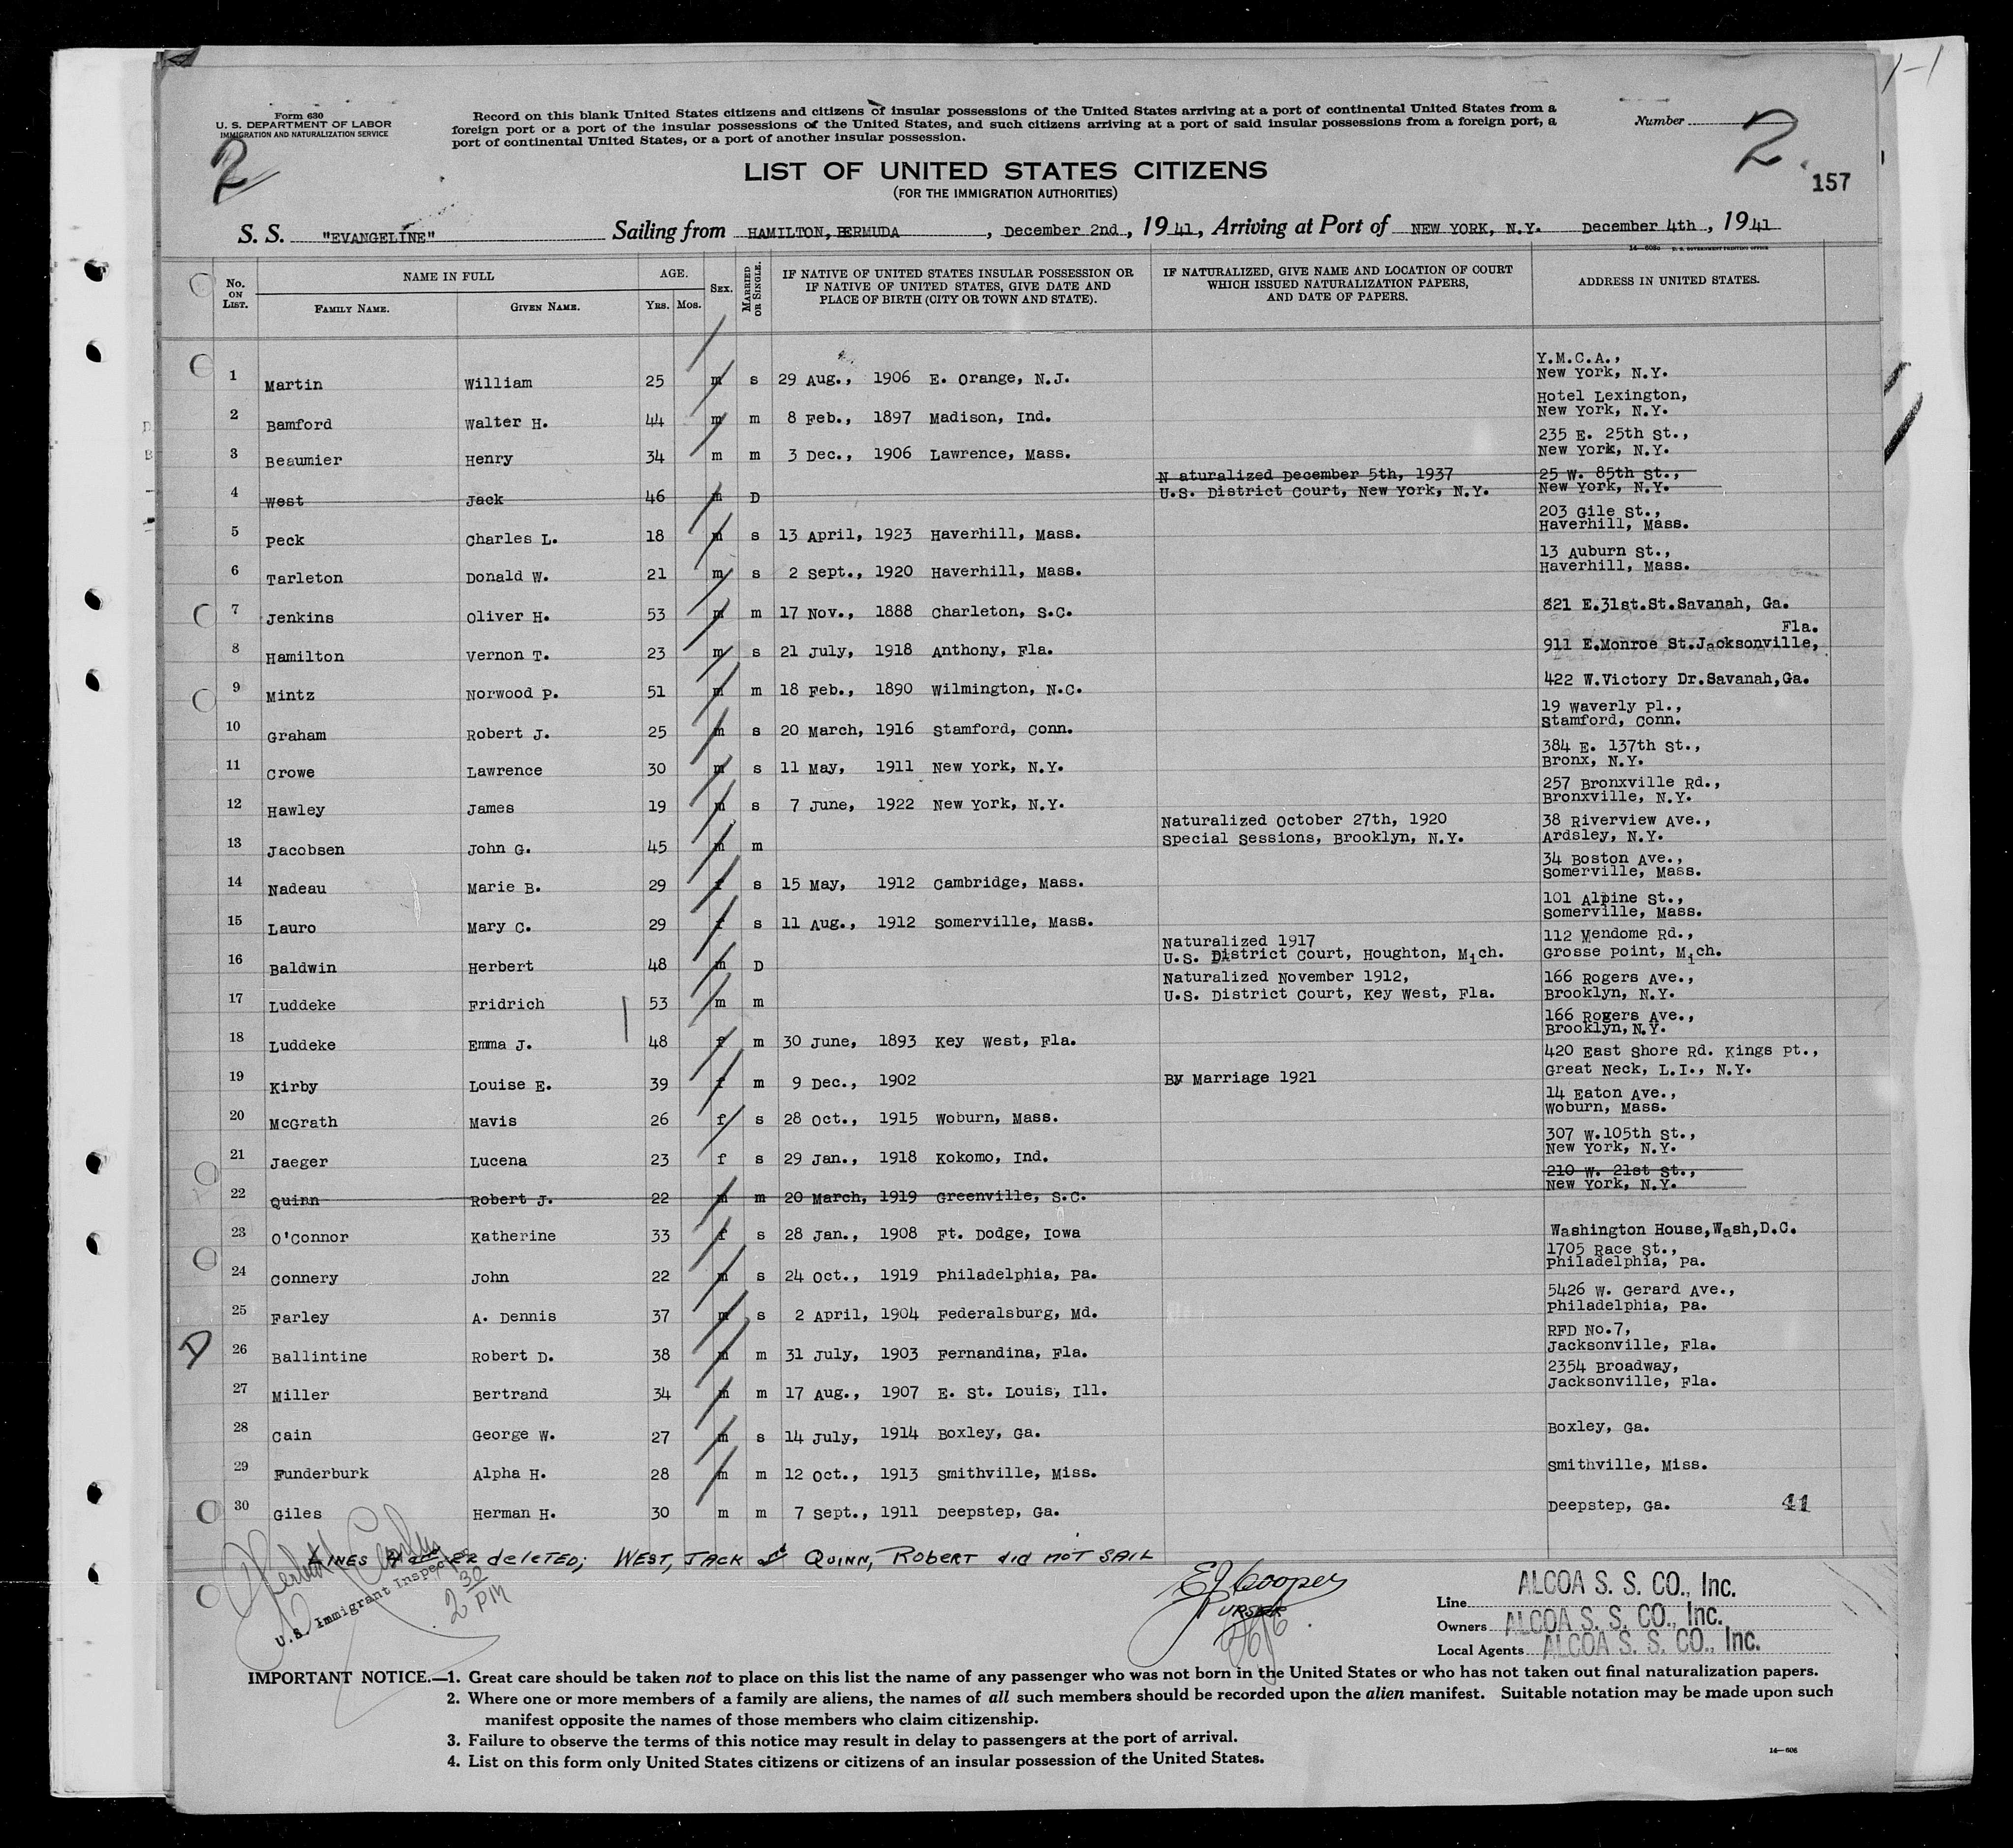 Form 630
U. S. DEPARTMENT OF LABOR
IMMIGRATION AND NATURALIZATION SERVICE
Record on this blank United States citizens and citizens of insular possessions of the United States arriving at a port of continental United States from a
foreign port or a port of the insular possessions of the United States, and such citizens arriving at a port of said insular possessions from a foreign port, a
port of continental United States, or a port of another insular possession.
Number
2
2
157
LIST OF UNITED STATES CITIZENS
(FOR THE IMMIGRATION AUTHORITIES)
S. S. "EVANGELINE" Sailing from HAMILTON, BERMUDA, December 2nd, 1941, Arriving at Port of NEW YORK, N.Y. December 4th, 1941
No. ON LIST. NAME IN FULL FAMILY NAME. GIVEN NAME. AGE. YRS. MOS. SEX. MARRIED OR SINGLE. IF NATIVE OF UNITED STATES INSULAR POSSESSION OR IF NATIVE OF UNITED STATES, GIVE DATE AND PLACE OF BIRTH (CITY OR TOWN AND STATE). IF NATURALIZED, GIVE NAME AND LOCATION OF COURT WHICH ISSUED NATURALIZATION PAPERS, AND DATE OF PAPERS. ADDRESS IN UNITED STATES.
1 Martin William 25 m s 29 Aug., 1906 E. Orange, N.J. Y.M.C.A., New York, N.Y.
2 Bamford Walter H. 44 m m 8 Feb., 1897 Madison, Ind. Hotel Lexington, New York, N.Y.
3 Beaumier Henry 34 m m 3 Dec., 1906 Lawrence, Mass. 235 E. 25th St., New York, N.Y.
4 West Jack 46 m D N aturalized December 5th, 1937 U.S. District Court, New York, N.Y. 25 W. 85th St., New York, N.Y.
5 Peck Charles L. 18 m s 13 April, 1923 Haverhill, Mass. 203 Gile St., Haverhill, Mass.
6 Tarleton Donald W. 21 m s 2 Sept., 1920 Haverhill, Mass. 13 Auburn St., Haverhill, Mass.
7 Jenkins Oliver H. 53 m m 17 Nov., 1888 Charleton, S.C. 821 E.31st.St.Savanah, Ga.
8 Hamilton Vernon T. 23 m s 21 July, 1918 Anthony, Fla. 911 E.Monroe St.Jacksonville, Fla.
9 Mintz Norwood P. 51 m m 18 Feb., 1890 Wilmington, N.C. 422 W.Victory Dr.Savanah,Ga.
10 Graham Robert J. 25 m s 20 March, 1916 Stamford, Conn. 19 Waverly Pl., Stamford, Conn.
11 Crowe Lawrence 30 m s 11 May, 1911 New York, N.Y. 384 E. 137th St., Bronx, N.Y.
12 Hawley James 19 m s 7 June, 1922 New York, N.Y. 257 Bronxville Rd., Bronxville, N.Y.
13 Jacobsen John G. 45 m m Naturalized October 27th, 1920 Special Sessions, Brooklyn, N.Y. 38 Riverview Ave., Ardsley, N.Y.
14 Nadeau Marie B. 29 f s 15 May, 1912 Cambridge, Mass. 34 Boston Ave., Somerville, Mass.
15 Lauro Mary C. 29 f s 11 Aug., 1912 Somerville, Mass. 101 Alpine St., Somerville, Mass.
16 Baldwin Herbert 48 m D Naturalized 1917 U.S. District Court, Houghton, Mich. 112 Mendome Rd., Grosse Point, Mich.
17 Luddeke Fridrich 53 m m Naturalized November 1912, U.S. District Court, Key West, Fla. 166 Rogers Ave., Brooklyn, N.Y.
18 Luddeke Emma J. 48 f m 30 June, 1893 Key West, Fla. 166 Rogers Ave., Brooklyn, N.Y.
19 Kirby Louise E. 39 f m 9 Dec., 1902 By Marriage 1921 420 East Shore Rd. Kings Pt., Great Neck, L.I., N.Y.
20 McGrath Mavis 26 f s 28 Oct., 1915 Woburn, Mass. 14 Eaton Ave., Woburn, Mass.
21 Jaeger Lucena 23 f s 29 Jan., 1918 Kokomo, Ind. 307 W.105th St., New York, N.Y.
22 Quinn Robert J. 22 m m 20 March, 1919 Greenville, S.C. 210 W. 21st St., New York, N.Y.
23 O'Connor Katherine 33 f s 28 Jan., 1908 Ft. Dodge, Iowa Washington House,Wash,D.C.
24 Connery John 22 m s 24 Oct., 1919 Philadelphia, Pa. 1705 Race St., Philadelphia, Pa.
25 Farley A. Dennis 37 m s 2 April, 1904 Federalsburg, Md. 5426 W. Gerard Ave., Philadelphia, Pa.
26 Ballintine Robert D. 38 m m 31 July, 1903 Fernandina, Fla. RFD No.7, Jacksonville, Fla.
D
27 Miller Bertrand 34 m m 17 Aug., 1907 E. St. Louis, Ill. 2354 Broadway, Jacksonville, Fla.
28 Cain George W. 27 m s 14 July, 1914 Boxley, Ga. Boxley, Ga.
29 Funderburk Alpha H. 28 m m 12 Oct., 1913 Smithville, Miss. Smithville, Miss.
30 Giles Herman H. 30 m m 7 Sept., 1911 Deepstep, Ga. Deepstep, Ga. 41
LINES 4 and 22 deleted; WEST, JACK & QUINN, Robert did not SAIL
U.S. Immigrant Inspector
2 30 PM
EJ Cooper
PURSER
Line ALCOA S. S. CO., Inc.
Owners ALCOA S. S. CO., Inc.
Local Agents ALCOA S. S. CO., Inc.
IMPORTANT NOTICE.—1. Great care should be taken not to place on this list the name of any passenger who was not born in the United States or who has not taken out final naturalization papers.
2. Where one or more members of a family are aliens, the names of all such members should be recorded upon the alien manifest. Suitable notation may be made upon such
manifest opposite the names of those members who claim citizenship.
3. Failure to observe the terms of this notice may result in delay to passengers at the port of arrival.
4. List on this form only United States citizens or citizens of an insular possession of the United States.
14—606